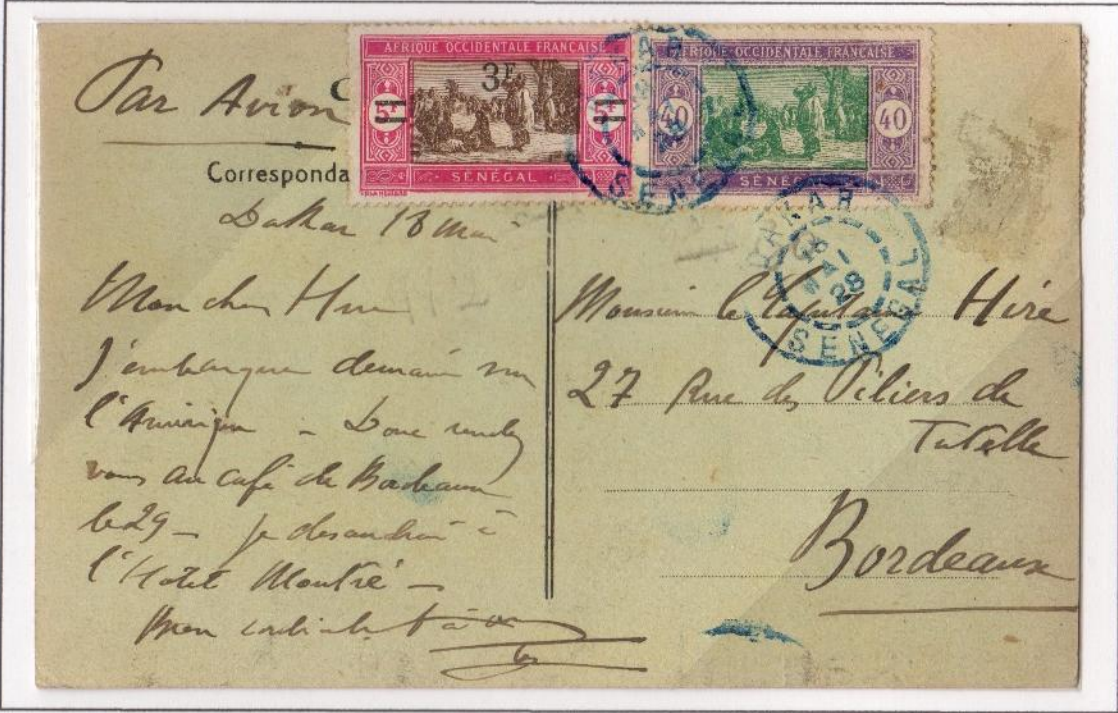 Par Avion
AFRIQUE OCCIDENTALE FRANÇAISE
3F
5F 5F
SÉNÉGAL
AFRIQUE OCCIDENTALE FRANÇAISE
40 40
SÉNÉGAL
DAKAR
SENEGAL
DAKAR
MAI
28
SENEGAL
Corresponda
Dakar 18 mai
Mon cher Hire
J'embarque demain sur
l'Amérique - Donc rendez
vous au café de Bordeaux
le 29 - Je descendrai à
l'Hotel Montré -
Bien cordialement à vous
Monsieur le Capitaine Hiré
27 Rue des Piliers de
Tutelle
Bordeaux